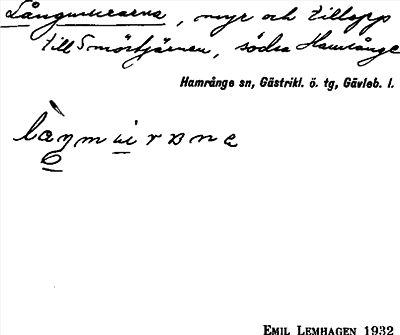 Långmurarna, myr och tillopp
till Smörtjärnen, södra Hamrånge
Hamrånge sn, Gästrikl. ö. tg, Gävleb. l.
EMIL LEMHAGEN 1932